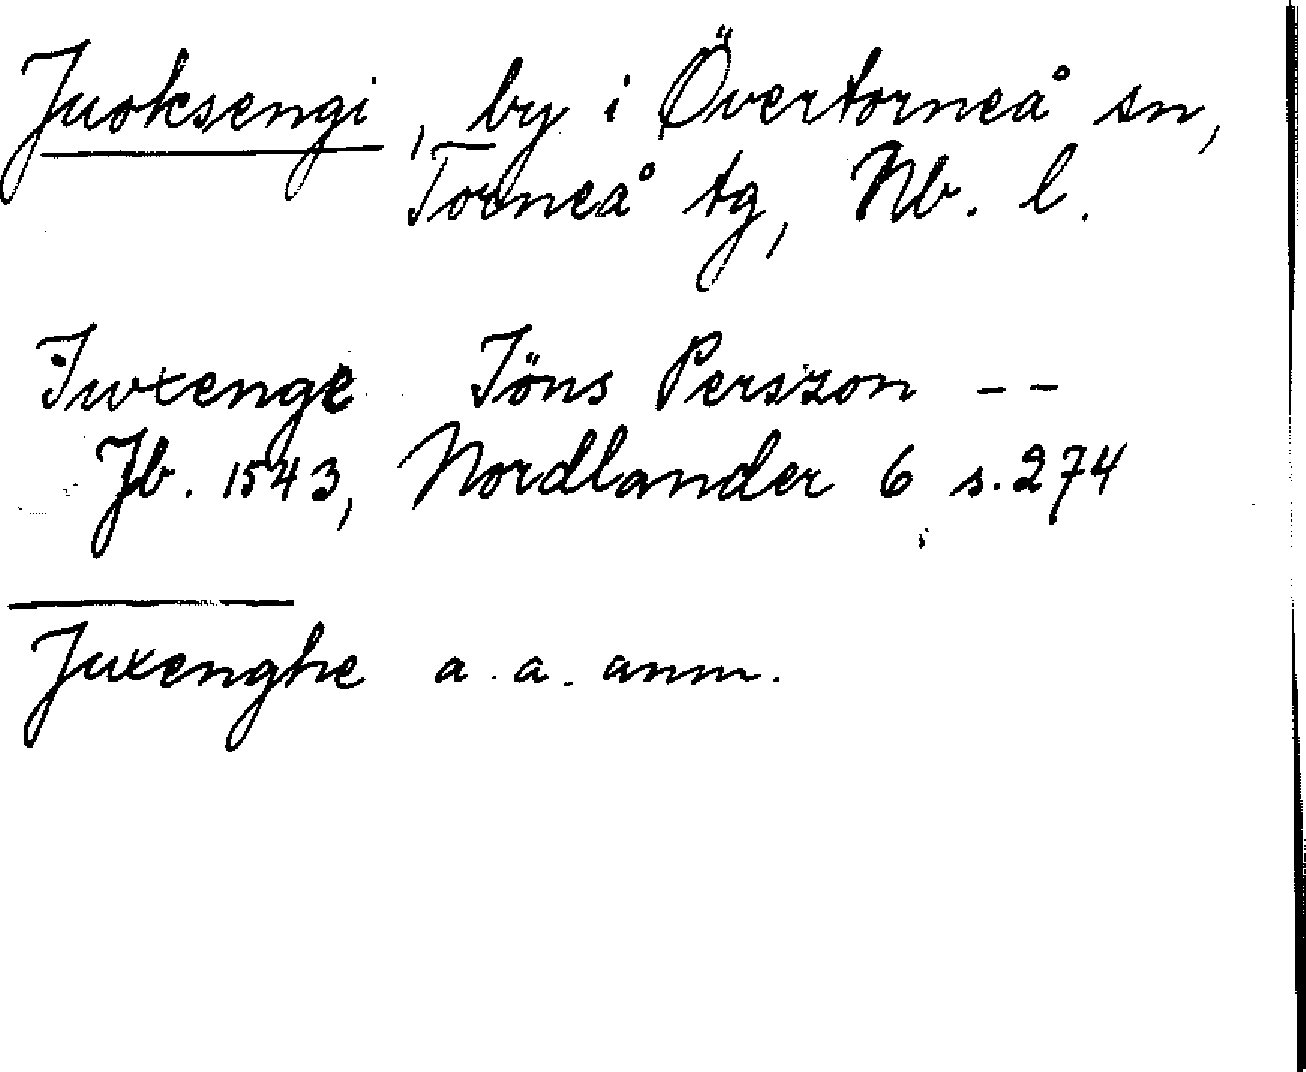 Juoksengi, by i Övertorneå sn,
Torneå tg, Nb. l.
Iwxenge Iöns Perszon --
Jb. 1543, Nordlander 6 s. 274
Juxenghe a. a. anm.